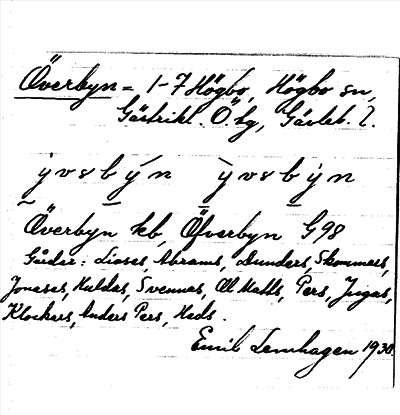 Överbyn = 1-7 Högbo, Högbo sn,
Gästrikl. Ö tg, Gävleb. l.
y v e r b y n y v e r b y n
Överbyn kb, Öfverbyn G98
Gårdar: Liases, Abrams, Dunders, Skommars,
Jonases, Huldas, Svennas, Oll Matts, Pers, Jugas,
Klockars, Anders Pers, Heds.
Emil Lemhagen 1930